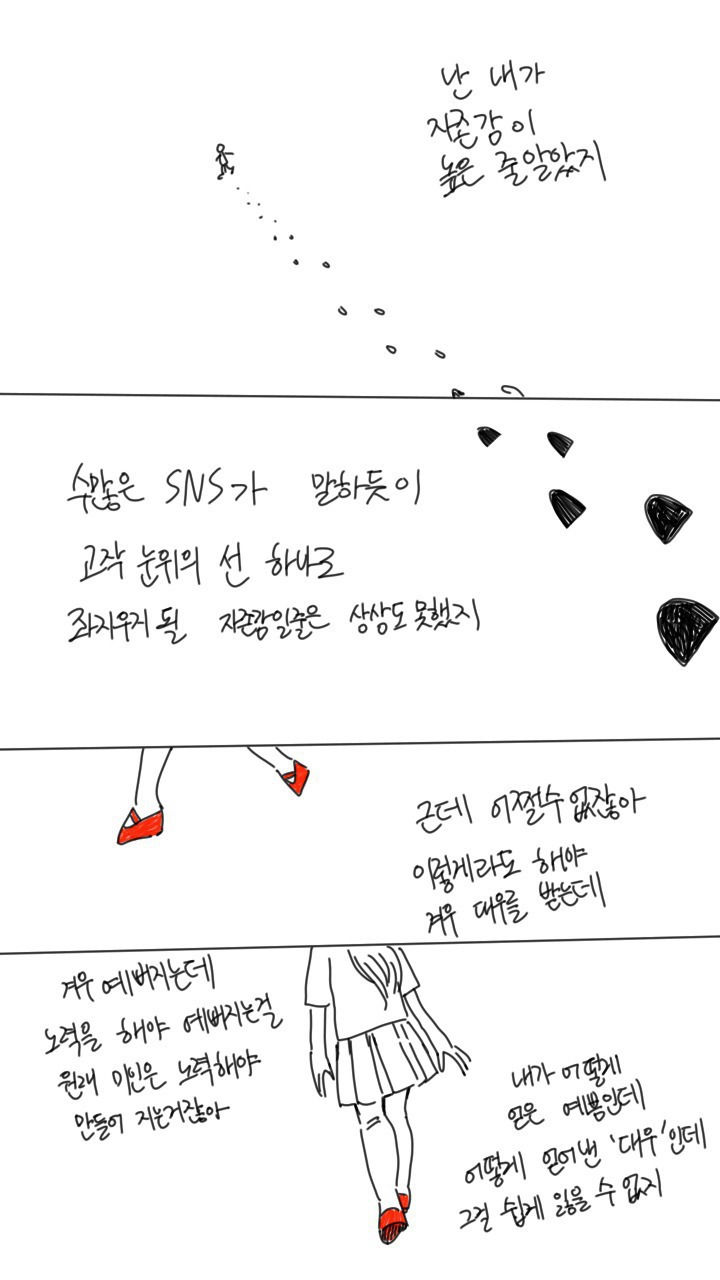 난 내가
자존감이
높은 줄알았지
수많은 SNS가 말하듯이
고작 눈위의 선 하나로
좌지우지 될 자존감일줄은 상상도 못했지
근데 어쩔수 없잖아
이렇게라도 해야
겨우 대우를 받는데
겨우 예뻐지는데
노력을 해야 예뻐지는걸
원래 미인은 노력해야
만들어 지는거잖아
내가 어떻게
얻은 예쁨인데
어떻게 얻어낸 '대우'인데
그걸 쉽게 잃을 수 없지